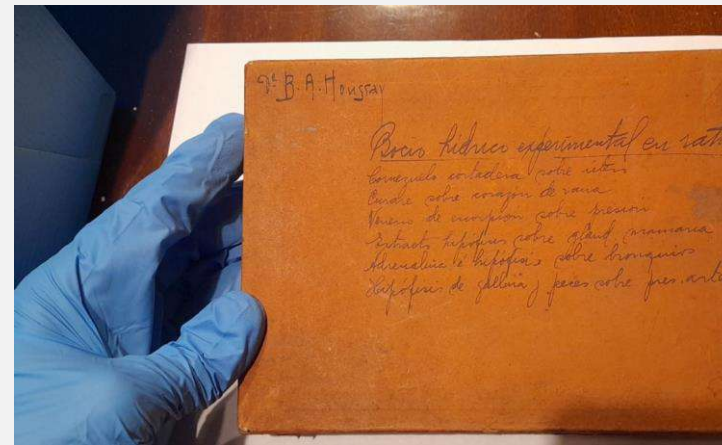 Dr B. A. Houssay
Bocio hídrico experimental en rat
Cornezuelo cortadera sobre útero
Curare sobre corazón de rana
Veneno de escorpión sobre presión
Extracto hipófisis sobre gland. mamaria
Adrenalina é hipófisis sobre bronquios
Hipófisis de gallina y peces sobre pres. art